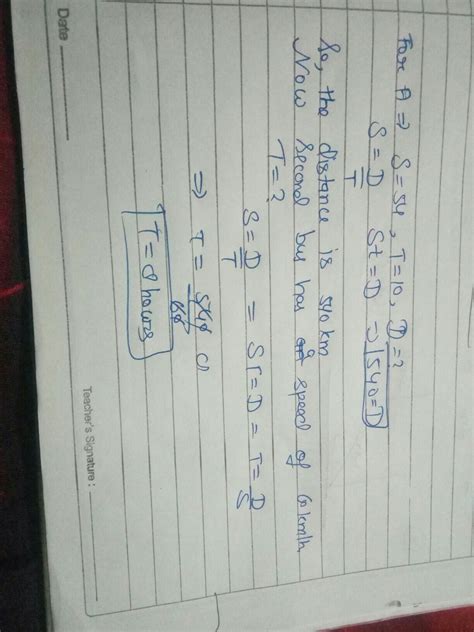 Date
For A ⇒ S=54, T=10, D=?
S = D/T St=D ⇒ 540=D
So, the distance is 540 km
Now second bus has speed of 60km/h
T=?
S = D/T = ST=D = T=D/S
⇒ T = 540/60
T = 9 hours
Teacher's Signature :